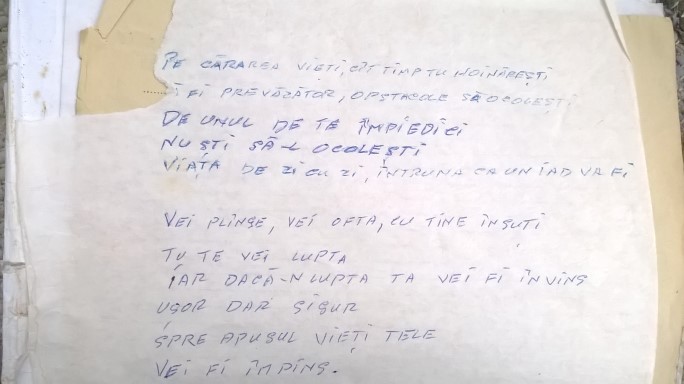 PE CĂRAREA VIEȚI, CÎT TIMP TU HOINĂREȘTI
FI PREVĂZĂTOR, OPSTACOLE SĂ OCOLEȘTI.
DE UNUL DE TE ÎMPIEDICI
NU ȘTI SĂ-L OCOLEȘTI
VIAȚA DE ZI CU ZI, ÎNTRUNA CA UN IAD VA FI
VEI PLÎNGE, VEI OFTA, CU TINE ÎNSUȚI
TU TE VEI LUPTA
IAR DACĂ-N LUPTA TA VEI FI ÎNVINS
UȘOR DAR SIGUR
SPRE APUSUL VIEȚI TELE
VEI FI ÎMPINS.